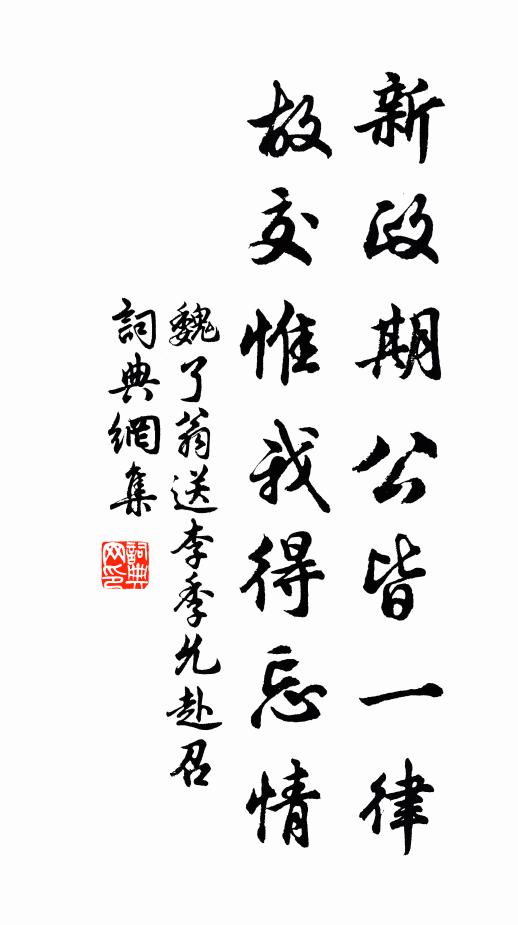 新政期公皆一律
故交惟我得忘情
魏了翁送李季允赴召
詞典網集
詞典网印